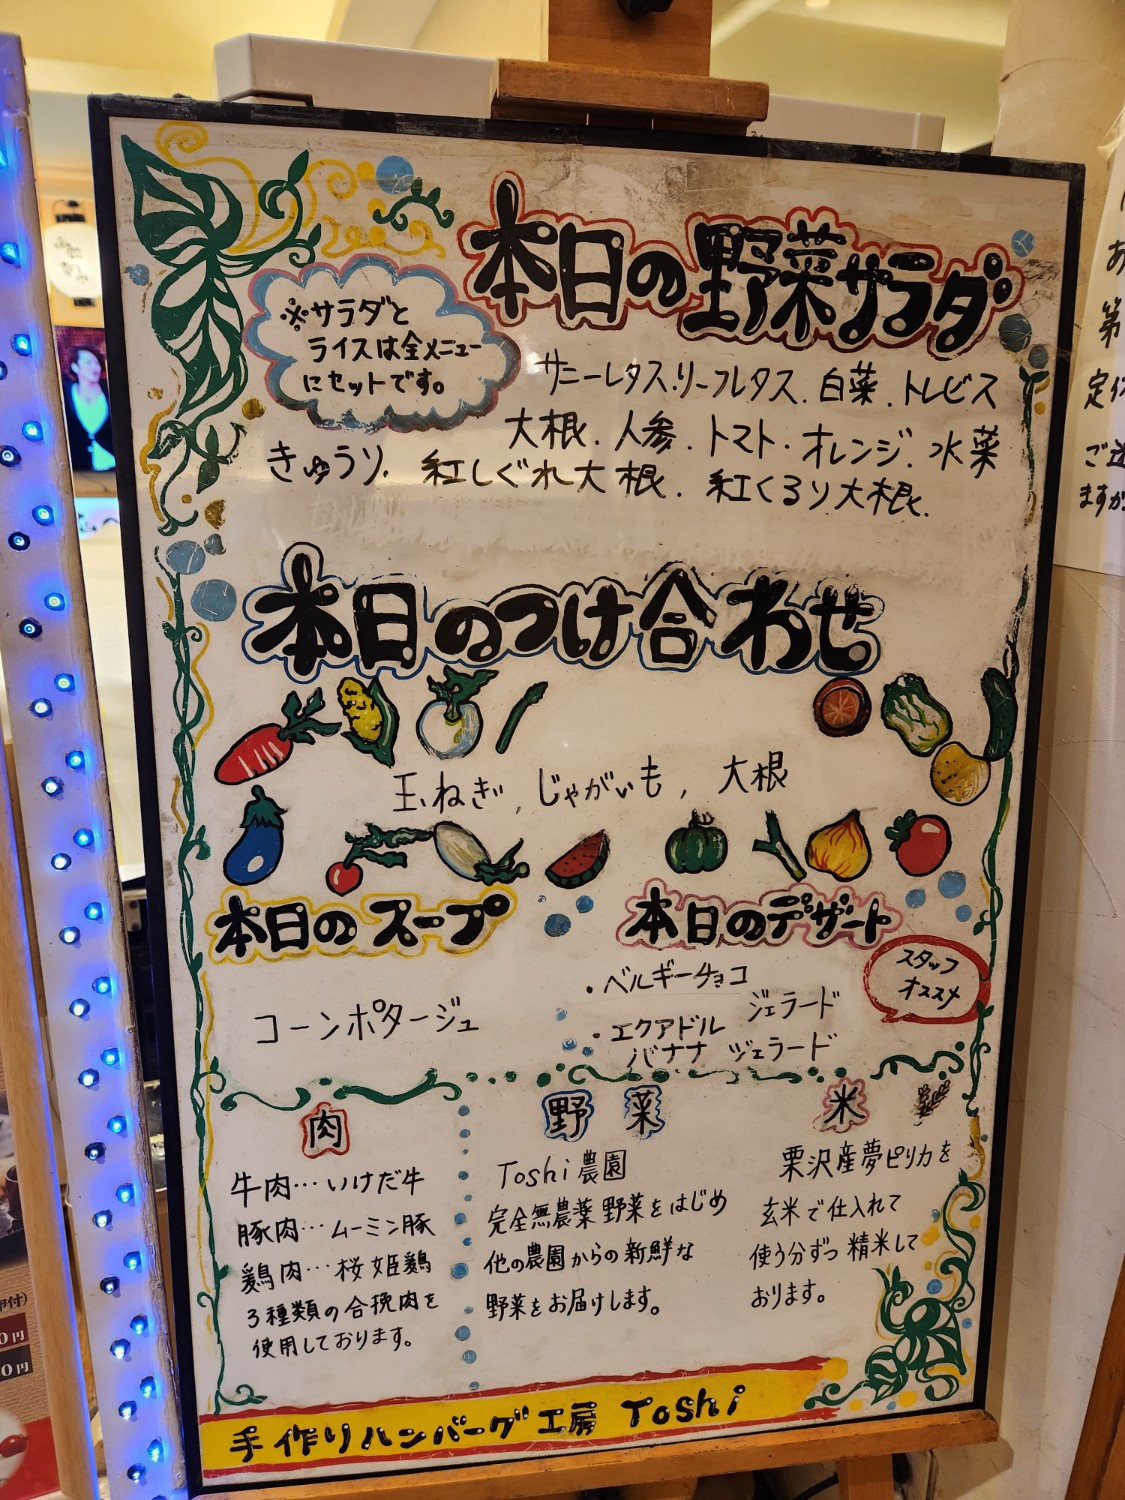 本日の野菜サラダ
※サラダと
ライスは全メニュー
にセットです。
サニーレタス.リーフレタス.白菜.トレビス
大根.人参.トマト.オレンジ.水菜
きゅうり.紅しぐれ大根.紅くるり大根.
本日のつけ合わせ
玉ねぎ,じゃがいも,大根
本日のスープ
コーンポタージュ
本日のデザート
スタッフ
オススメ
・ベルギーチョコ
ジェラード
・エクアドル
バナナ ジェラード
肉
牛肉…いけだ牛
豚肉…ムーミン豚
鶏肉…桜姫鶏
3種類の合挽肉を
使用しております。
野菜
Toshi農園
完全無農薬野菜をはじめ
他の農園からの新鮮な
野菜をお届けします。
米
栗沢産夢ピリカを
玄米で仕入れて
使う分ずつ精米して
おります。
手作りハンバーグ工房 Toshi
お
第
定休
ご迷
ますが
付)
0円
0円